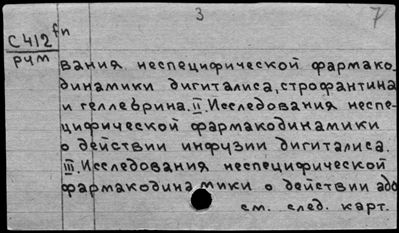 3 7
С 412 fn
РЧМ
вания неспецифической фармако-
динамики дигиталиса, строфантина
и геллеврина. II. Исследования неспе-
цифической фармакодинамики
о действии инфузии дигиталиса.
III. Исследования неспецифической
фармакодинамики о действии адо
см. след. карт.